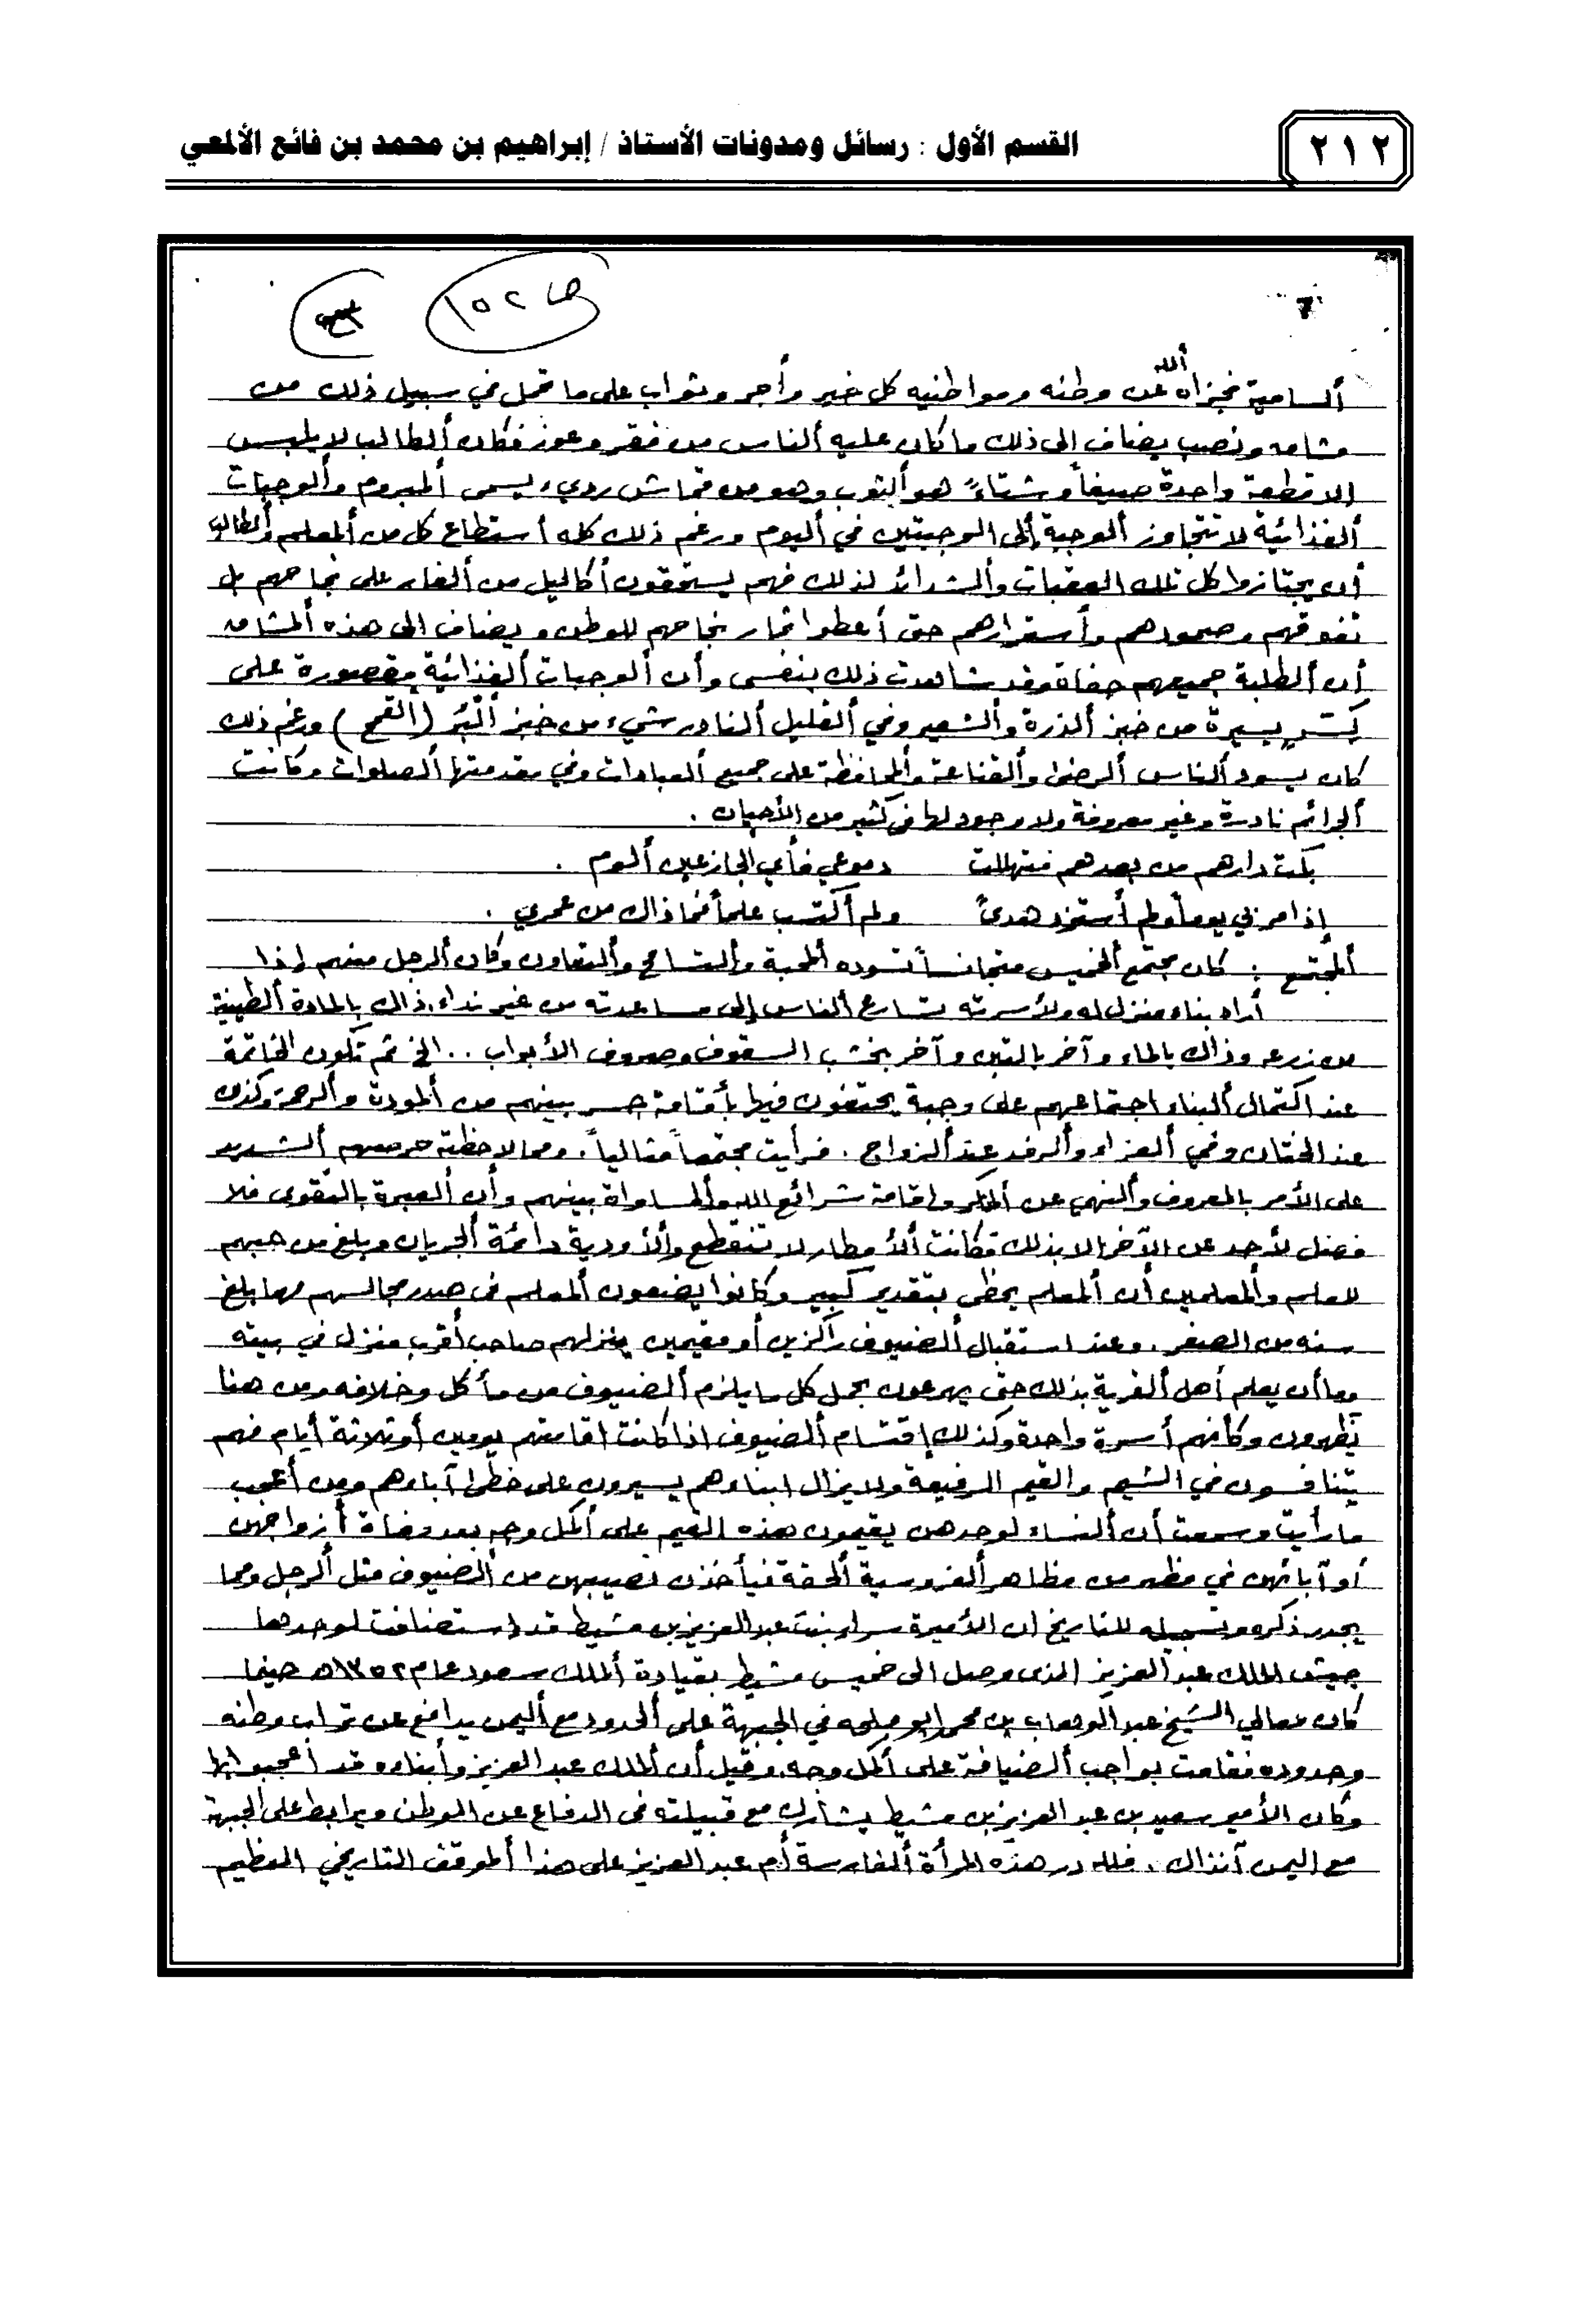 ٢١٢
القسم الأول : رسائل ومدونات الأستاذ / إبراهيم بن محمد بن فائع الألمعي
٧
ص ١٥٢
ألسامية فجزاه الله عن وطنه ومواطنيه كل خير وأجر وثواب على ما تحمل في سبيل ذلك من
مشاق ونصب يضاف إلى ذلك ما كان عليه ألناس من فقر وعوز فكان ألطالب لا يلبس
إلا قطعة واحدة صيفاً وشتاءً هو ألثوب وهو من قماش رديء يسمى ألمبروم وألوجبات
ألغذائية لا تتجاوز ألوجبة إلى الوجبتين في أليوم ورغم ذلك كله أستطاع كل من ألمعلم وألطالب
أن يجتازوا كل تلك العقبات وألشدائد لذلك فهم يستحقون أكاليل من ألغار على نجاحهم بل
تفوقهم وصمودهم وأستقرارهم حتى أعطوا ثمار نجاحهم للوطن ويضاف الى هذه ألمشاق
أن ألطلبة جميعهم حفاة وقد شاهدت ذلك بنفسي وأن ألوجبات ألغذائية مقصورة على
كِسَرٍ يسيرة من خبز ألذرة وألشعير وفي ألقليل ألنادر شيء من خبز ألبُر (القمح) ورغم ذلك
كان يسود ألناس ألرضى وألقناعة وألمحافظة على جميع ألعبادات وفي مقدمتها ألصلوات وكانت
ألجرائم نادرة وغير معروفة ولا وجود لها في كثير من الأحيان .
بكت دارهم من بعدهم فتهللت دموعي فأي الجازعين ألوم .
إذا مر بي يوماً ولم أستزد هدىً ولم أكتسب علماً فما ذاك من عمري .
ألمجتمع : كان مجتمع ألخميس متجانساً تسوده ألمحبة وألتسامح وألتعاون وكان ألرجل منهم إذا
أراد بناء منزل له ولأسرته تسارع ألناس إلى مساعدته من غير نداء. ذاك بالمادة ألطينية
من زرعه وذاك بالماء وآخر بالتبن وآخر بخشب السقوف وصروف الأبواب .. الخ ثم تكون الخاتمة
عند اكتمال ألبناء اجتماعهم على وجبة يحتفون فيها بأقامة جسر بينهم من ألمودة وألرحمة وكذلك
عند الختان وفي ألعزاء وألرفد عند ألزواج . فرأيت مجتمعاً مثالياً . ومما لاحظته حرصهم ألشديد
على الأمر بالمعروف وألنهي عن ألمنكر وإقامة شرائع الله وألمساواة بينهم وأن ألعبرة بالتقوى فلا
فضل لأحد عن الآخر إلا بذلك فكانت ألأمطار لا تنقطع وألأودية دائمة ألجريان وبلغ من حبهم
للعلم وألمعلمين أن ألمعلم يحظى بتقدير كبير وكانوا يضعون ألمعلم في صدر مجالسهم مهما بلغ
سنه من الصغر . وعند استقبال ألضيوف زاكزين أو مقيمين ينزلهم صاحب أقرب منزل في بيته
وما أن يعلم أهل ألقرية بذلك حتى يهرعون بحمل كل ما يلزم ألضيوف من مأكل وخلافه ومن هنا
يَظهرون وكأنهم أسرة واحدة وكذلك إقتسام ألضيوف اذا كانت اقامتهم يومين أو ثلاثة أيام فهم
يتنافسون في الشيم والقيم الرفيعة ولا يزال ابناءهم يسيرون على خطى آباءهم ومن أعجب
ما رأيت وسمعت أن ألنساء لوحدهن يقيمون بهذه القيم على أكمل وجه بعد وفاة أزواجهن
أو آبائهن في مظهر من مظاهر ألفروسية ألحقة فيأخذن نصيبهن من ألضيوف مثل ألرجل ومما
يجدر ذكره وتسجيله للتاريخ ان الأميرة سراء بنت عبدالعزيز بن مشيط قد استضافت لوحدها
جيش الملك عبدالعزيز الذي وصل الى خميس مشيط بقيادة ألملك سعود عام ١٣٥٢هـ حينما
كان معالي الشيخ عبدالوهاب بن محمد ابو ملحه في الجبهة على ألحدود مع أليمن يدافع عن تراب وطنه
وحدوده فقامت بواجب ألضيافة على أكمل وجه. وقيل أن ألملك عبدالعزيز وأبناءه قد أعجبوا بها
وكان الأمير سعيد بن عبدالعزيز بن مشيط يشارك مع قبيلته في الدفاع عن الوطن ويرابط على الجبهة
مع اليمن آنذاك . فلله در هذه المرأة ألفارسة أم عبدالعزيز على هذا ألموقف التاريخي العظيم